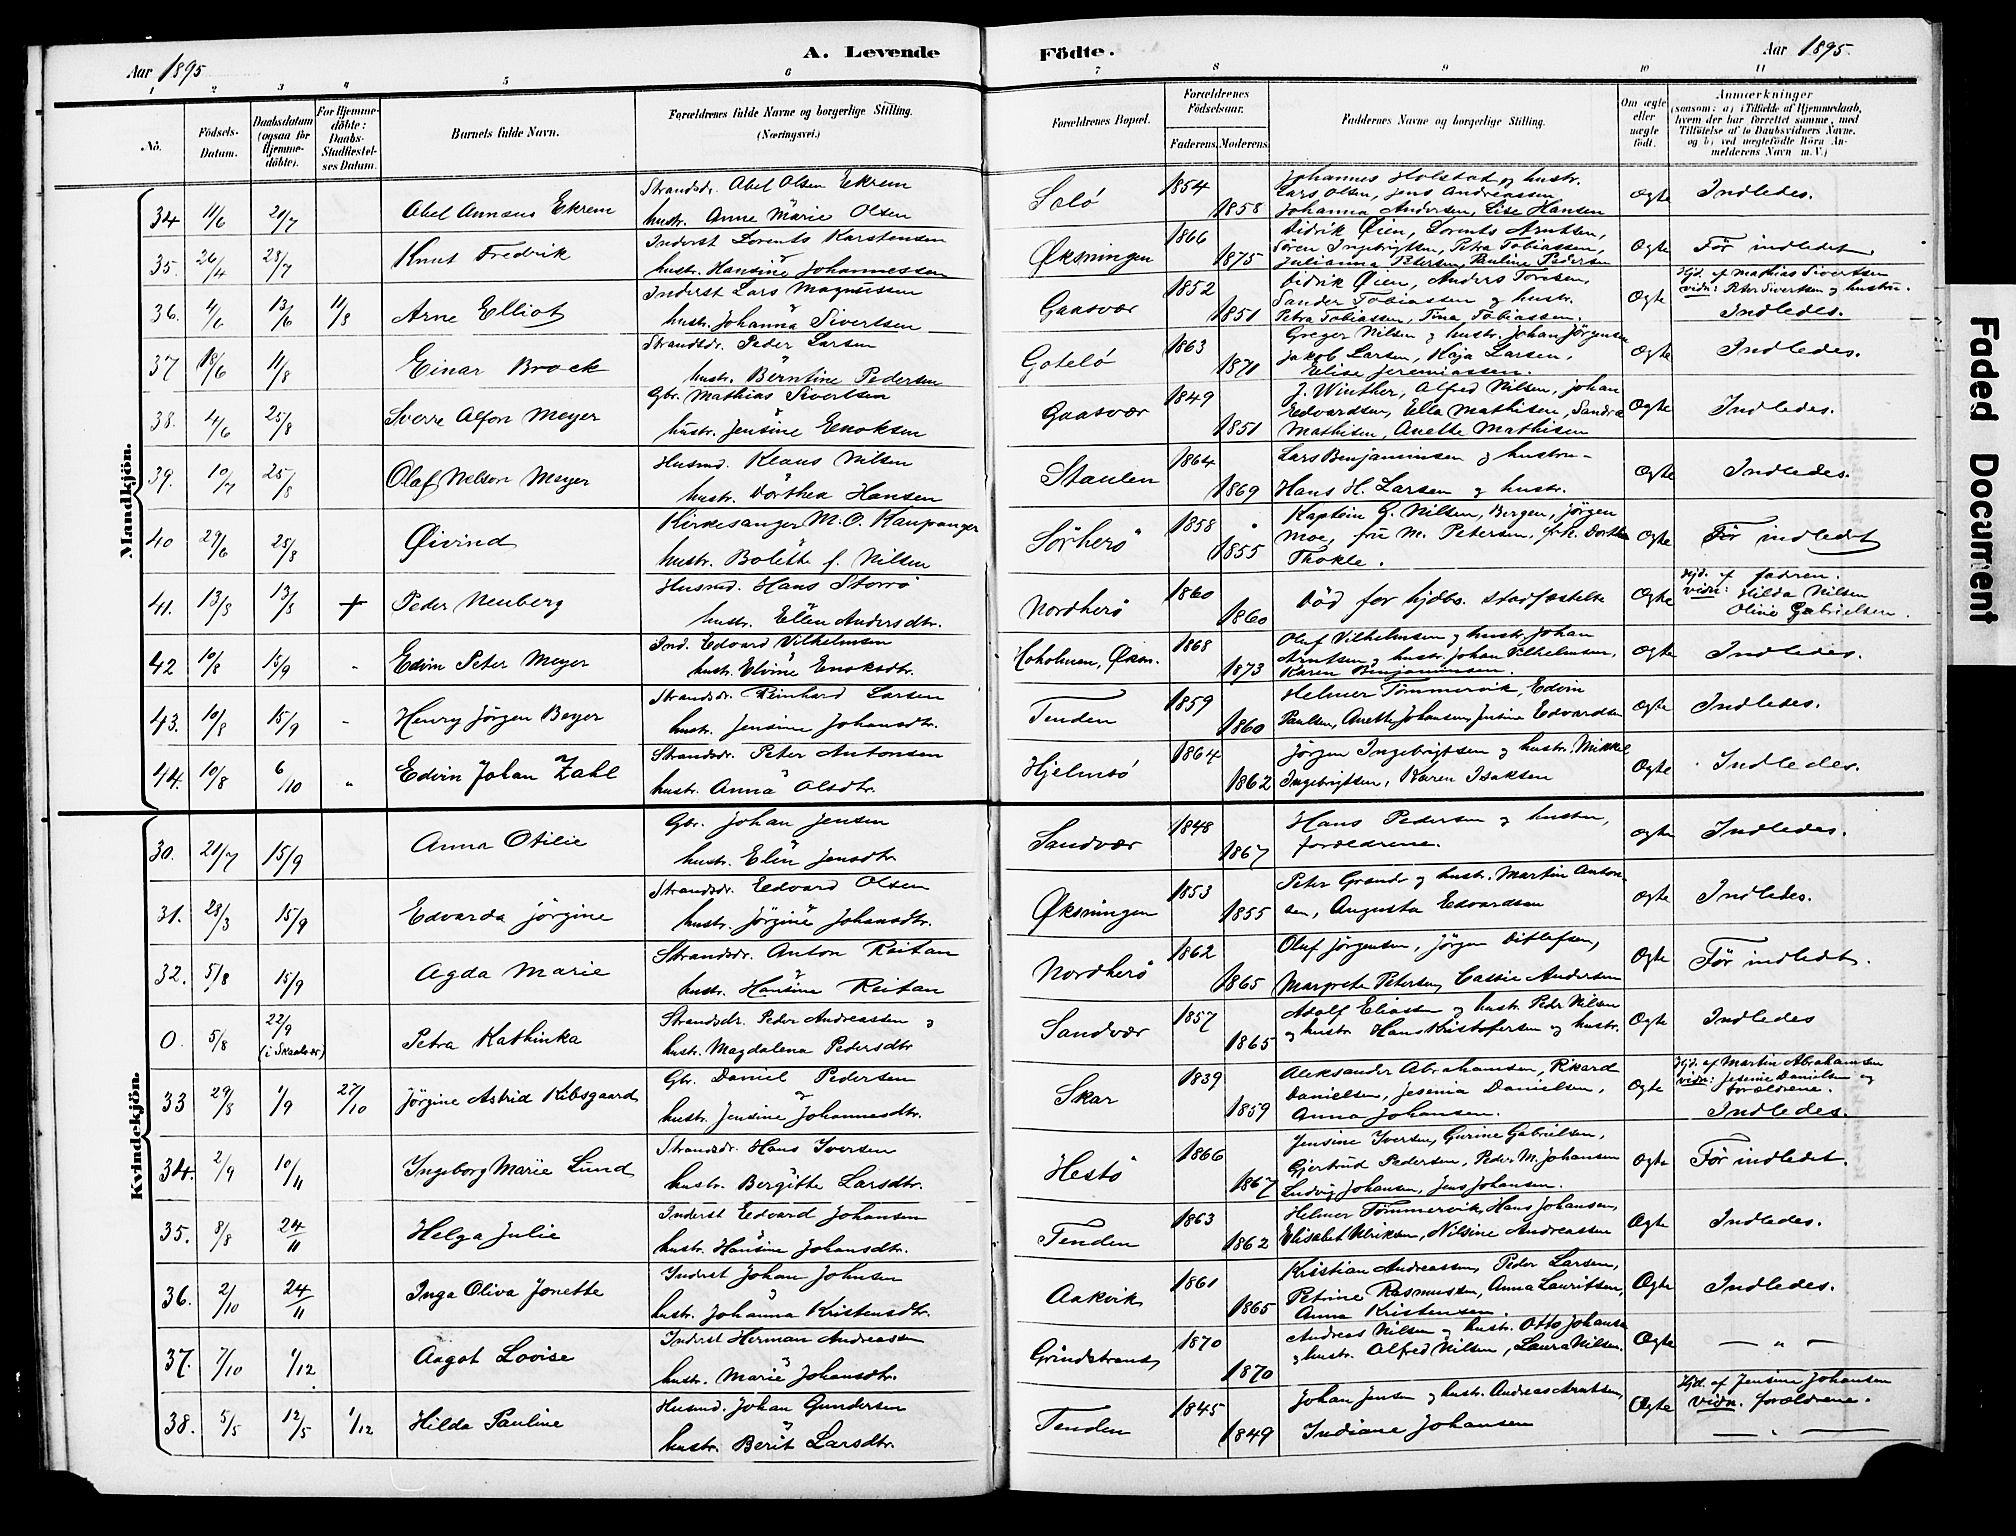 Aar 1895
A. Levende
Födte.
Aar 1895.
1 2 3 4 5 6 7 8 9 10 11
No.
Födsels-Datum.
Daabsdatum (ogsaa för Hjemme-döbte).
For Hjemme-döbte: Daabs-Stadfæstelses Datum.
Barnets fulde Navn.
Forældrenes fulde Navne og borgerlige Stilling. (Næringsvei.)
Forældrenes Bopæl.
Forældrenes Födselsaar.
Faderens. Moderens.
Faddernes Navne og borgerlige Stilling.
Om ægte eller uægte födt.
Anmærkninger (saasom: a) i Tilfælde af Hjemmedaab, hvem der har forrettet samme, med Tilföielse af to Daabsvidners Navne, og b) ved uægtefödte Börn Anmelderens Navn m. V.)
Mandkjön.
34. 11/6 21/7 Abel Annæus Ekrem Strandsdr. Abel Olsen Ekrem
hustr. Anne Marie Olsen Solö 1854 1858 Johannes Holstad og hustr.
Lars Olsen, Jens Andreassen,
Johanna Andersen, Lise Hansen Ægte Indledes.
35. 26/4 28/7 Knut Fredrik Inderst Lorents Karstensen
hustr. Hansine Johannessen Öksningen 1866 1875 Didrik Öien, Lorents Arntsen,
Sören Ingebrigtsen, Petra Tobiassen,
Julianna Petersen, Pauline Pedersen Ægte Før indledet
36. 4/6 13/6 11/8 Arne Elliot Inderst Lars Magnussen
hustr. Johanna Sivertsen Gaasvær 1852 1851 Didrik Öien, Anders
Sander Tobiassen og hustr.
Petra Tobiassen, Tina Tobiassen. Ægte Hjd. af Mathias Sivertsen
vidn: Peter Sivertsen og hustru.
Indledes.
37. 18/6 11/8 Einar Brock Strandsdr. Peder Larsen
hustr. Berntine Pedersen Gotelö 1863 1871 Greger Nilsen og hustr. Johan Jörgensen
Jakob Larsen, Kaja Larsen,
Elise Jeremiassen. Ægte Indledes.
38. 4/6 25/8 Sverre Alfon Meyer Gbr. Mathias Sivertsen
hustr. Jensine Enoksen Gaasvær 1849 1851 J. Winther, Alfred Nilsen, Johan
Edvardsen, Ella Mathisen, Sandra
Mathisen, Anette Mathisen Ægte Indledes.
39. 10/7 25/8 Olaf Nelson Meyer Husmd. Klaus Nilsen
hustr. Dorthea Hansen Staulen 1864 1869 Lars Benjaminsen og hustru
Hans H. Larsen og hustr. Ægte Indledes.
40 29/6 25/8 Øivind Kirkesanger M. O. Kaupanger
hustr. Bolette f. Nilsen Sörherö 1858 1855 Kaptein G. Nilsen, Bergen, Jörgen
Moe, fru M. Petersen, frk. Dorthea
Thokle. Ægte Før indledet
41. 13/3 13/3 + Peder Neuberg Husmd. Hans Storrö
hustr. Ellen Andersdtr. Nordherö 1860 1860 Död for hjdbs. stadfæstelse Ægte Hjd. af faderen.
vidn: Hilda Nilsen
Oline Gabrielsen.
42 10/8 15/9 Edvin Peter Meyer Ind. Edvard Vilhelmsen
hustr. Elvine Enoksdtr. Hoholmen, Öksn. 1868 1873 Oluf Vilhelmsen og hustr. Johan
Arntsen og hustr. Johan Vilhelmsen,
Karen Benjaminsen. Ægte Indledes.
43. 10/8 15/9 Henry Jörgen Beyer Strandsdr. Reinhard Larsen
hustr. Jensine Johansdtr. Tenden 1859 1860 Helmer Tömmervik, Edvin
Paulsen, Anette Johansen, Jensine Edvardsen Ægte Indledes.
44. 10/8 6/10 Edvin Johan Zahl Strandsdr. Peter Antonsen
hustr. Anna Olsdtr. Hjelmsö 1864 1862 Jörgen Ingebrigtsen og hustr. Mikkel
Ingebrigtsen, Karen Isaksen Ægte Indledes.
Kvindekjön.
30. 21/7 15/9 Anna Otilie Gbr. Johan Jensen
hustr. Elen Jensdtr Sandvær 1848 1867 Hans Pedersen og hustru,
forældrene. Ægte Indledes.
31. 28/3 15/9 Edvarda Jörgine Strandsdr. Edvard Olsen
hustr. Jörgine Johansdtr. Öksningen 1853 1855 Peter Grande og hustr. Martin Anton-
sen, Augusta Edvardsen Ægte Indledes.
32. 5/8 15/9 Agda Marie Strandsdr. Anton Reitan
hustr. Hansine Reitan Nordherö 1862 1865 Oluf Jörgensen, Jörgen Ditlefsen,
Margrete Petersen, Cassie Andersen Ægte Før indledet.
0. 5/8 22/9 (i Skaalvær) Petra Kathinka Strandsdr. Peder Andreassen og
hustr. Magdalena Pedersdtr Sandvær 1857 1865 Adolf Eliassen og hustr. Peder Nilsen
og hustr. Hans Kristofersen og hustr. Ægte Indledes
33 29/8 1/9 27/10 Jörgine Astrid Kibsgaard Gbr. Daniel Pedersen
hustr. Jensine Johannesdtr. Skar 1839 1859 Aleksander Abrahamsen, Rikard
Danielsen, Jesenia Danielsen,
Anna Johansen. Ægte Hjd. af Martin Abrahamsen
vidn: Jesenie Danielsen og
forældrene.
Indledes.
34. 2/9 10/11 Ingeborg Marie Lund Strandsdr. Hans Iversen
hustr. Bergitte Larsdtr. Hestö 1866 1867 Jensine Iversen, Gurine Gabrielsen,
Gjertrud Pedersen, Peder M. Johansen
Ludvig Johansen, Jens Johansen. Ægte Før indledet.
35. 8/8 24/11 Helga Julie Inderst Edvard Johansen
hustr. Hansine Johansdtr. Tenden 1863 1862 Helmer Tömmervik, Hans Johansen,
Elisabet Ulriksen, Nilsine Andreassen Ægte Indledes.
36. 2/10 24/11 Inga Oliva Jonette Inderst Johan Johnsen
hustr. Johanna Kristensdtr. Aakvik 1861 1865 Kristian Andreassen, Peder Larsen,
Petrine Rasmussen, Anna Lauritsen,
Anna Kristensen. Ægte Indledes.
37. 7/10 1/12 Aagot Lovise Inderst Herman Andreassen
hustr. Marie Johansdtr. Grindstrand 1870 1870 Andreas Nilsen og hustr. Otto Johansen
og hustr. Alfred Nilsen, Laura Nilsen. Ægte — " —
38. 5/5 12/5 1/12 Hilda Pauline Husmd. Johan Gundersen
hustr. Berit Larsdtr. Tenden 1845 1849 Johan Jensen og hustr. Andreas Arntsen,
Indiane Johansen Ægte Hjd. af Jensine Johansen
vidn. forældrene.
— " —
Faded Document